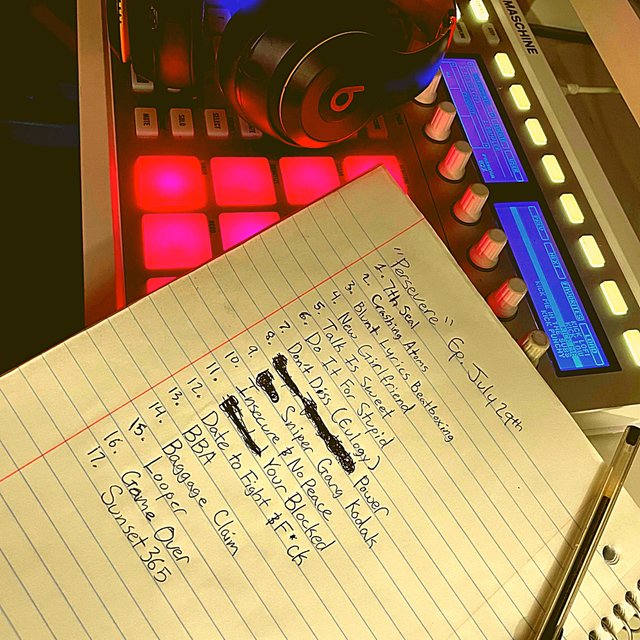 MASCHINE
SELECT
SOLO
MUTE
"Persevere" Ep. July 29th
1. 7th Seal
2. Crashing Atoms
3. Blunt Lyrics Beatboxing
4. New Girlfriend
5. Talk is Sweet
6. Do It For Stupid
7. Don't Diss (Eulogy)
8. Power
9. Sniper Gang Kodak
10. Insecure & No Peace
11. Your Blocked
12. Date to Fight & F*ck
13. BBA
14. Baggage Claim
15. Looper
16. Game Over
17. Sunset 365